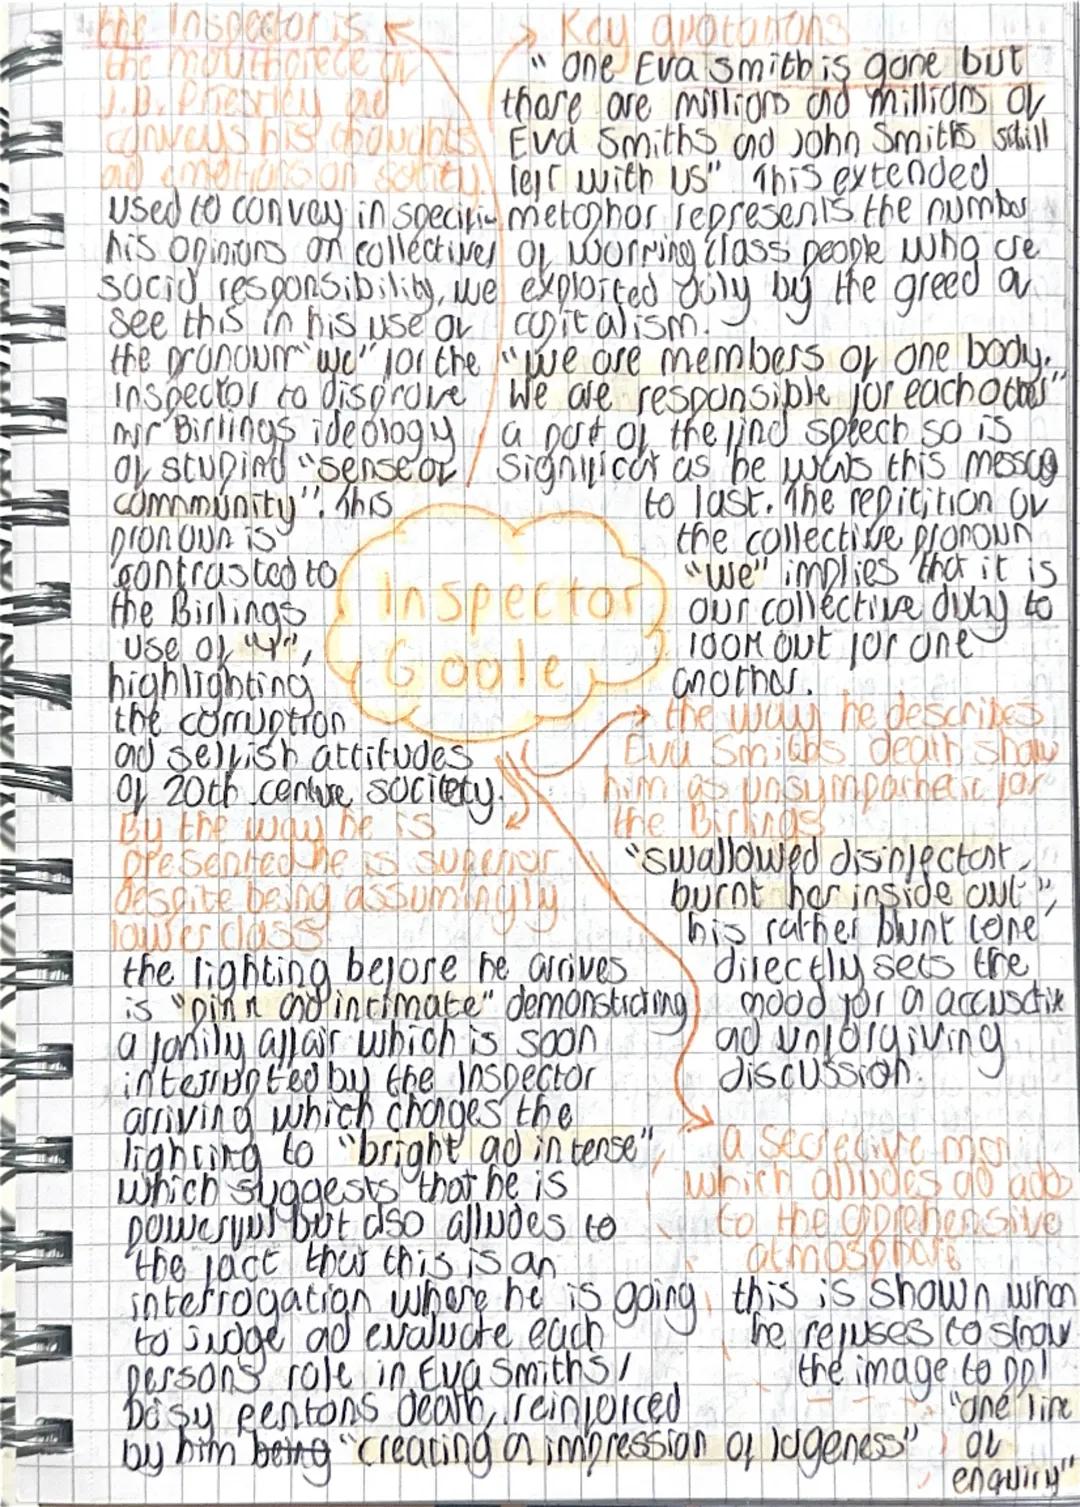 the Inspector is
the mouthpiece of
J.B. Priestley ad
conveys his thoughts
ad emotions on society.
used to convey in specific
his opinions on collectives
social responsibility, we
see this in his use of
the pronoun "we" for the
inspector to disprove
mr Birlings ideology
of stupind "sense of
community". This
pronoun is
contrasted to
the Birlings
use of "I",
highlighting
the corruption
ad selfish attitudes
of 20th centure socitety.
By the way he is
presented he is superior
despite being assumingly
lower class
the lighting before he arrives
is "pink and intimate" demonstrating
a family affair which is soon
interrupted by the Inspector
arriving which changes the
lighting to "bright ad intense"
which suggests that he is
powerful but also alludes to
the fact that this is an
interrogation where he is going
to judge ad evaluate each
persons role in Eva Smiths/
Daisy Rentons death, reinforced
by him being "creating a impression of largeness"
Inspector
Goole
Key quotations
"one Eva smith is gone but
there are millions and millions of
Eva Smiths ad John Smiths still
left with us" This extended
metaphor represents the number
of working class people who are
exploited daily by the greed of
capitalism.
"we are members of one body.
We are responsible for each other"
a part of the final speech so is
significant as he wants this message
to last. The repitition of
the collective pronoun
"we" implies that it is
our collective duty to
look out for one
another.
the way he describes
Eva Smiths death show
him as unsympathetic for
the Birlings
"swallowed disinfectant,
burnt her inside out",
his rather blunt tone
directly sets the
mood for a accusative
ad unforgiving
discussion.
a secretive man
which alludes ad adds
to the apprehensive
atmosphere
this is shown when
he refuses to show
the image to ppl
"one line
of
enquiry"